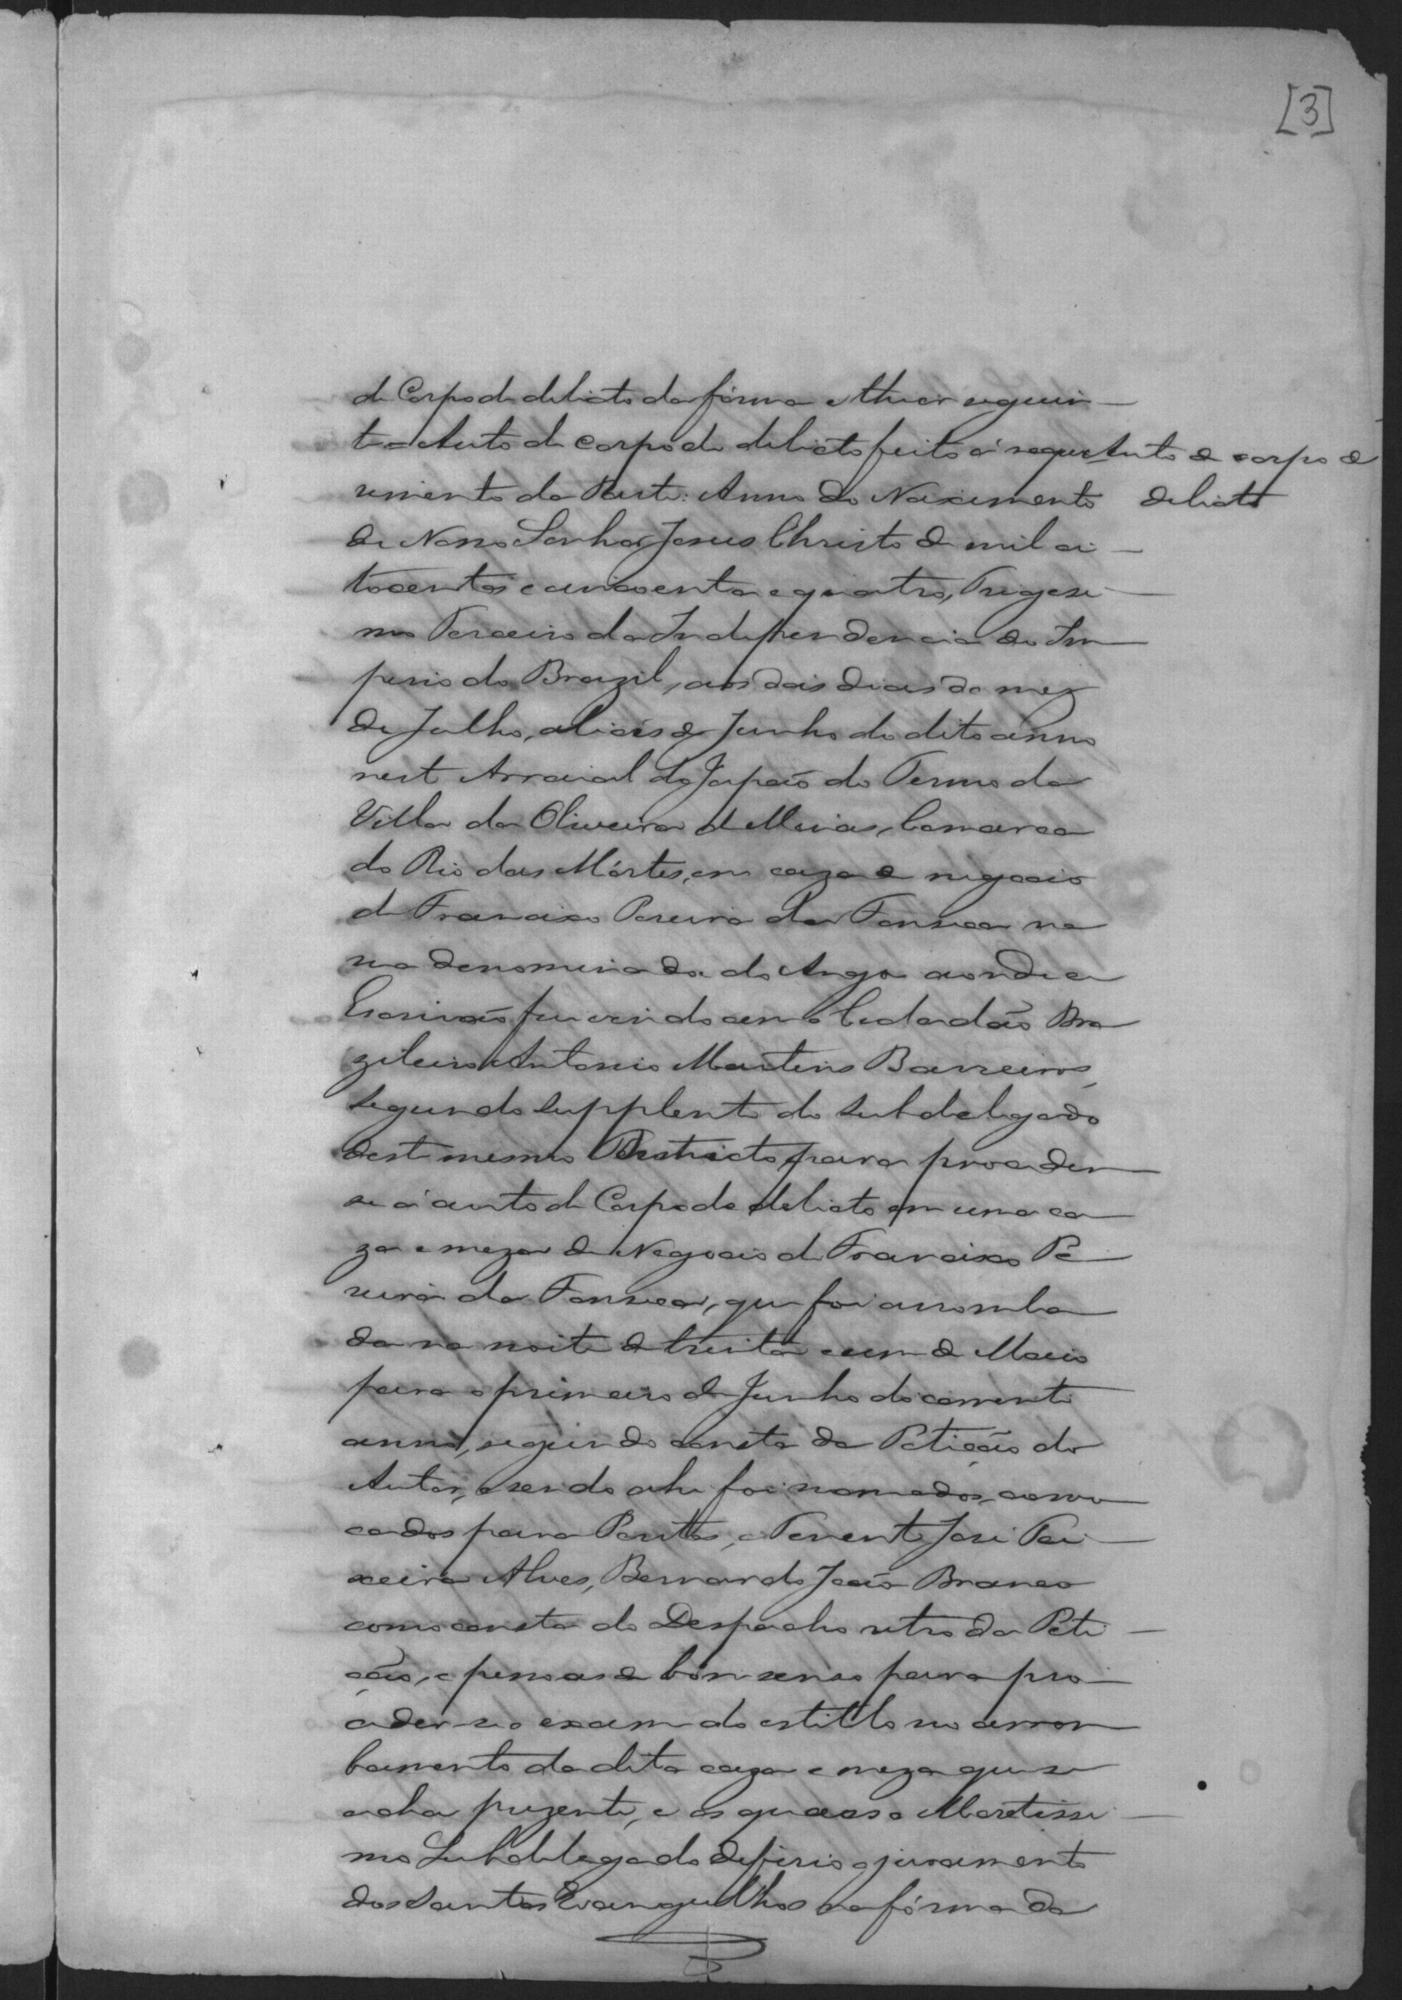 [3]
de Corpo de delicto da fórma e theor seguin-
te = Auto de corpo de delicto feito á reque-
rimento da Parte: Anno do Nascimento
Auto de corpo de
delicto
de Nosso Senhor Jesus Christo de mil oi-
tocentos e cincoenta e quatro, Trigesi-
mo Terceiro da Independencia do Im
perio do Brazil, aos dois dias do mez
de Julho, aliás de Junho do dito anno
neste Arraial do Japão do Termo da
Villa da Oliveira de Minas, Comarca
do Rio das Mórtes, em caza de negocio
de Francisco Pereira da Fonseca na
rua denominada do Argo aonde eu
Escrivão fui vindo com o Cidadão Bra
zileiro Antonio Martins Barreiros,
segundo supplente do subdelegado
deste mesmo Districto, para proceder
se a auto de Corpo de delicto em uma ca
za e meza de Negocio de Francisco Pe
reira da Fonseca, que foi arromba
da na noite de trinta e um de Maio
para o primeiro de Junho do corrente
anno, segundo consta da Petição do
Autor, e sendo ahi foi nomeados, convo
cados para Peritos, o Tenente José Tei-
xeira Alves, Bernardo João Branco
como consta do Despacho retro da Peti-
ção, e pessoas de bom senso para pro-
ceder-se o exame do estillo no arrom
bamento da dita caza e meza que se
acha prezente, e os quaes o Meretissi-
mo Subdelegado deferio o juramento
dos Santos Evangelhos na fórma da